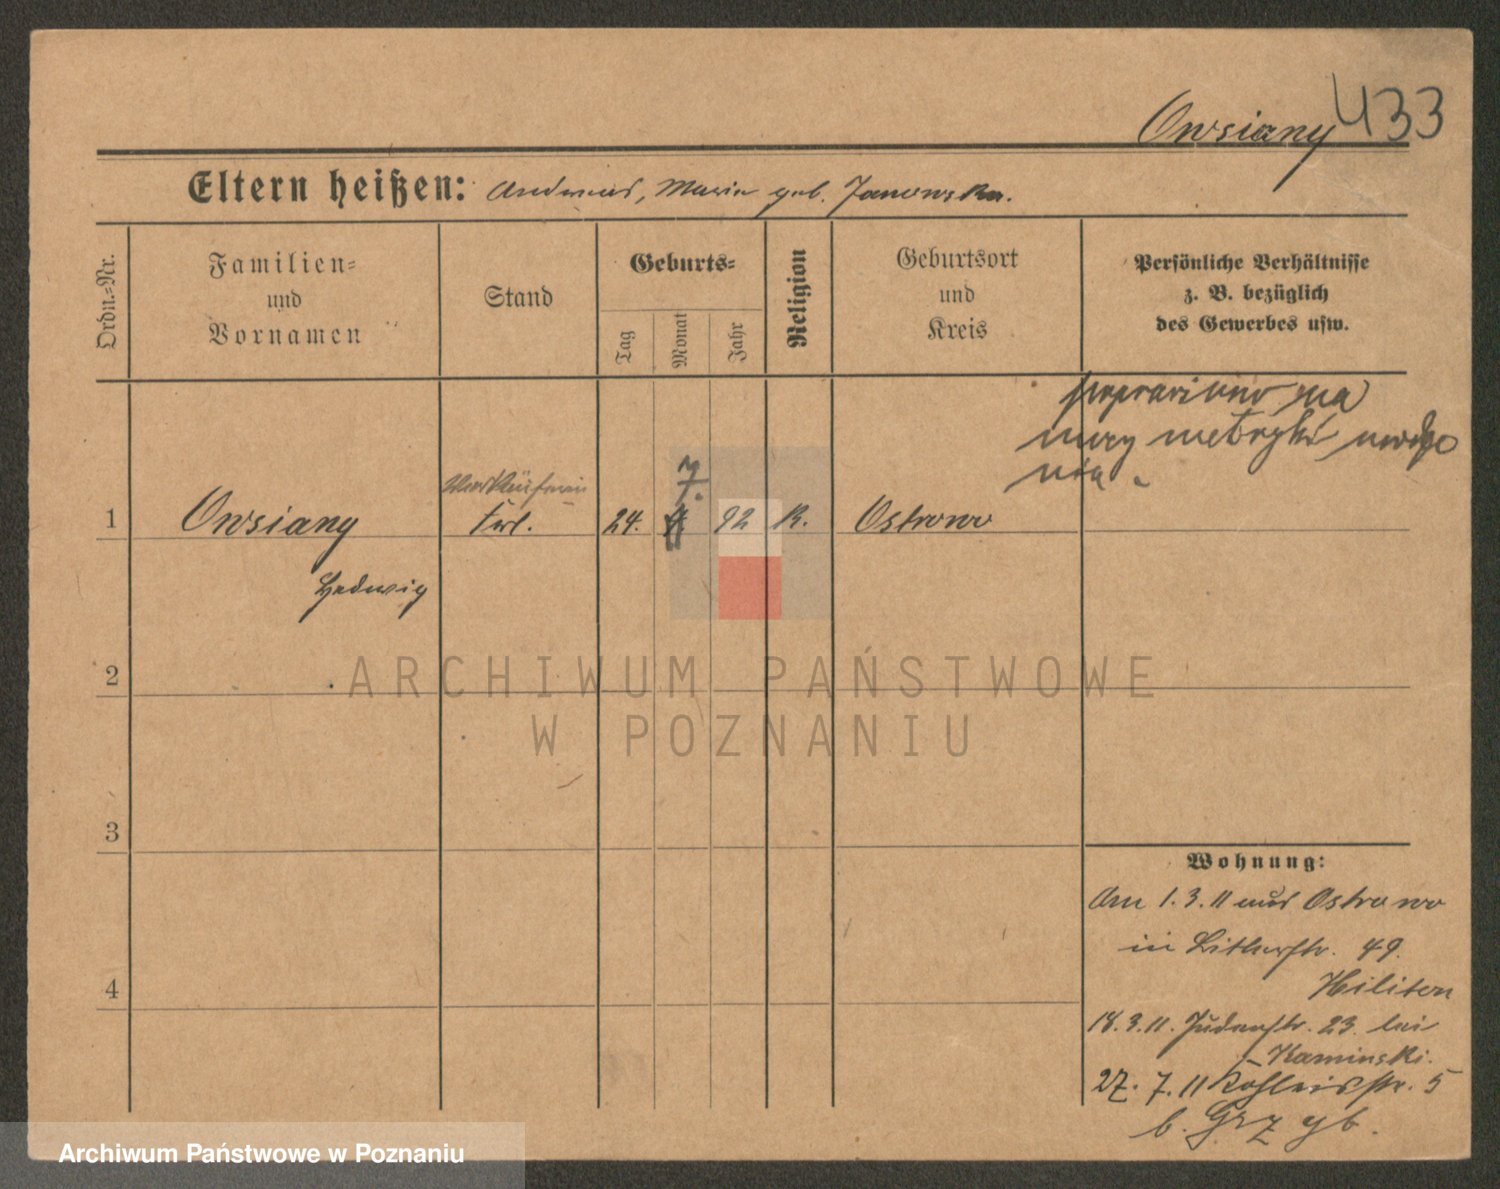 Owsiany 433
Eltern heißen: Andreas, Maria geb. Janowska.
Ordn.=Nr.
Familien=
und
Vornamen
Stand
Geburts=
Tag
Monat
Jahr
Religion
Geburtsort
und
Kreis
Persönliche Verhältnisse
z. B. bezüglich
des Gewerbes usw.
poprawiono na
mocy metryki urodze
nia.
7.
Verkäuferin
1 Owsiany Frl. 24. 92 K. Ostrowo
Hedwig
2
3
4
ARCHIWUM PAŃSTWOWE
W POZNANIU
Wohnung:
Am 1.3.11 aus Ostrowo
in 49.
18.3.11. Judenstr. 23. bei
Kaminski.
27.7.11 str. 5
b.
Archiwum Państwowe w Poznaniu